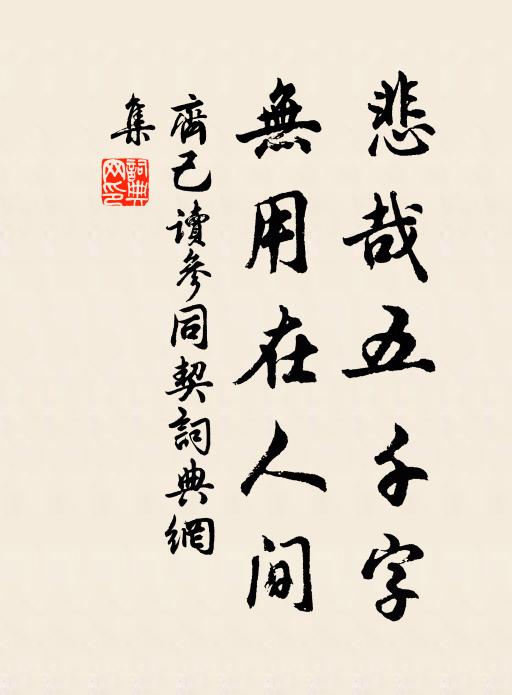 悲哉五千字
無用在人間
齊己讀參同契詞典網
集
詞典網印